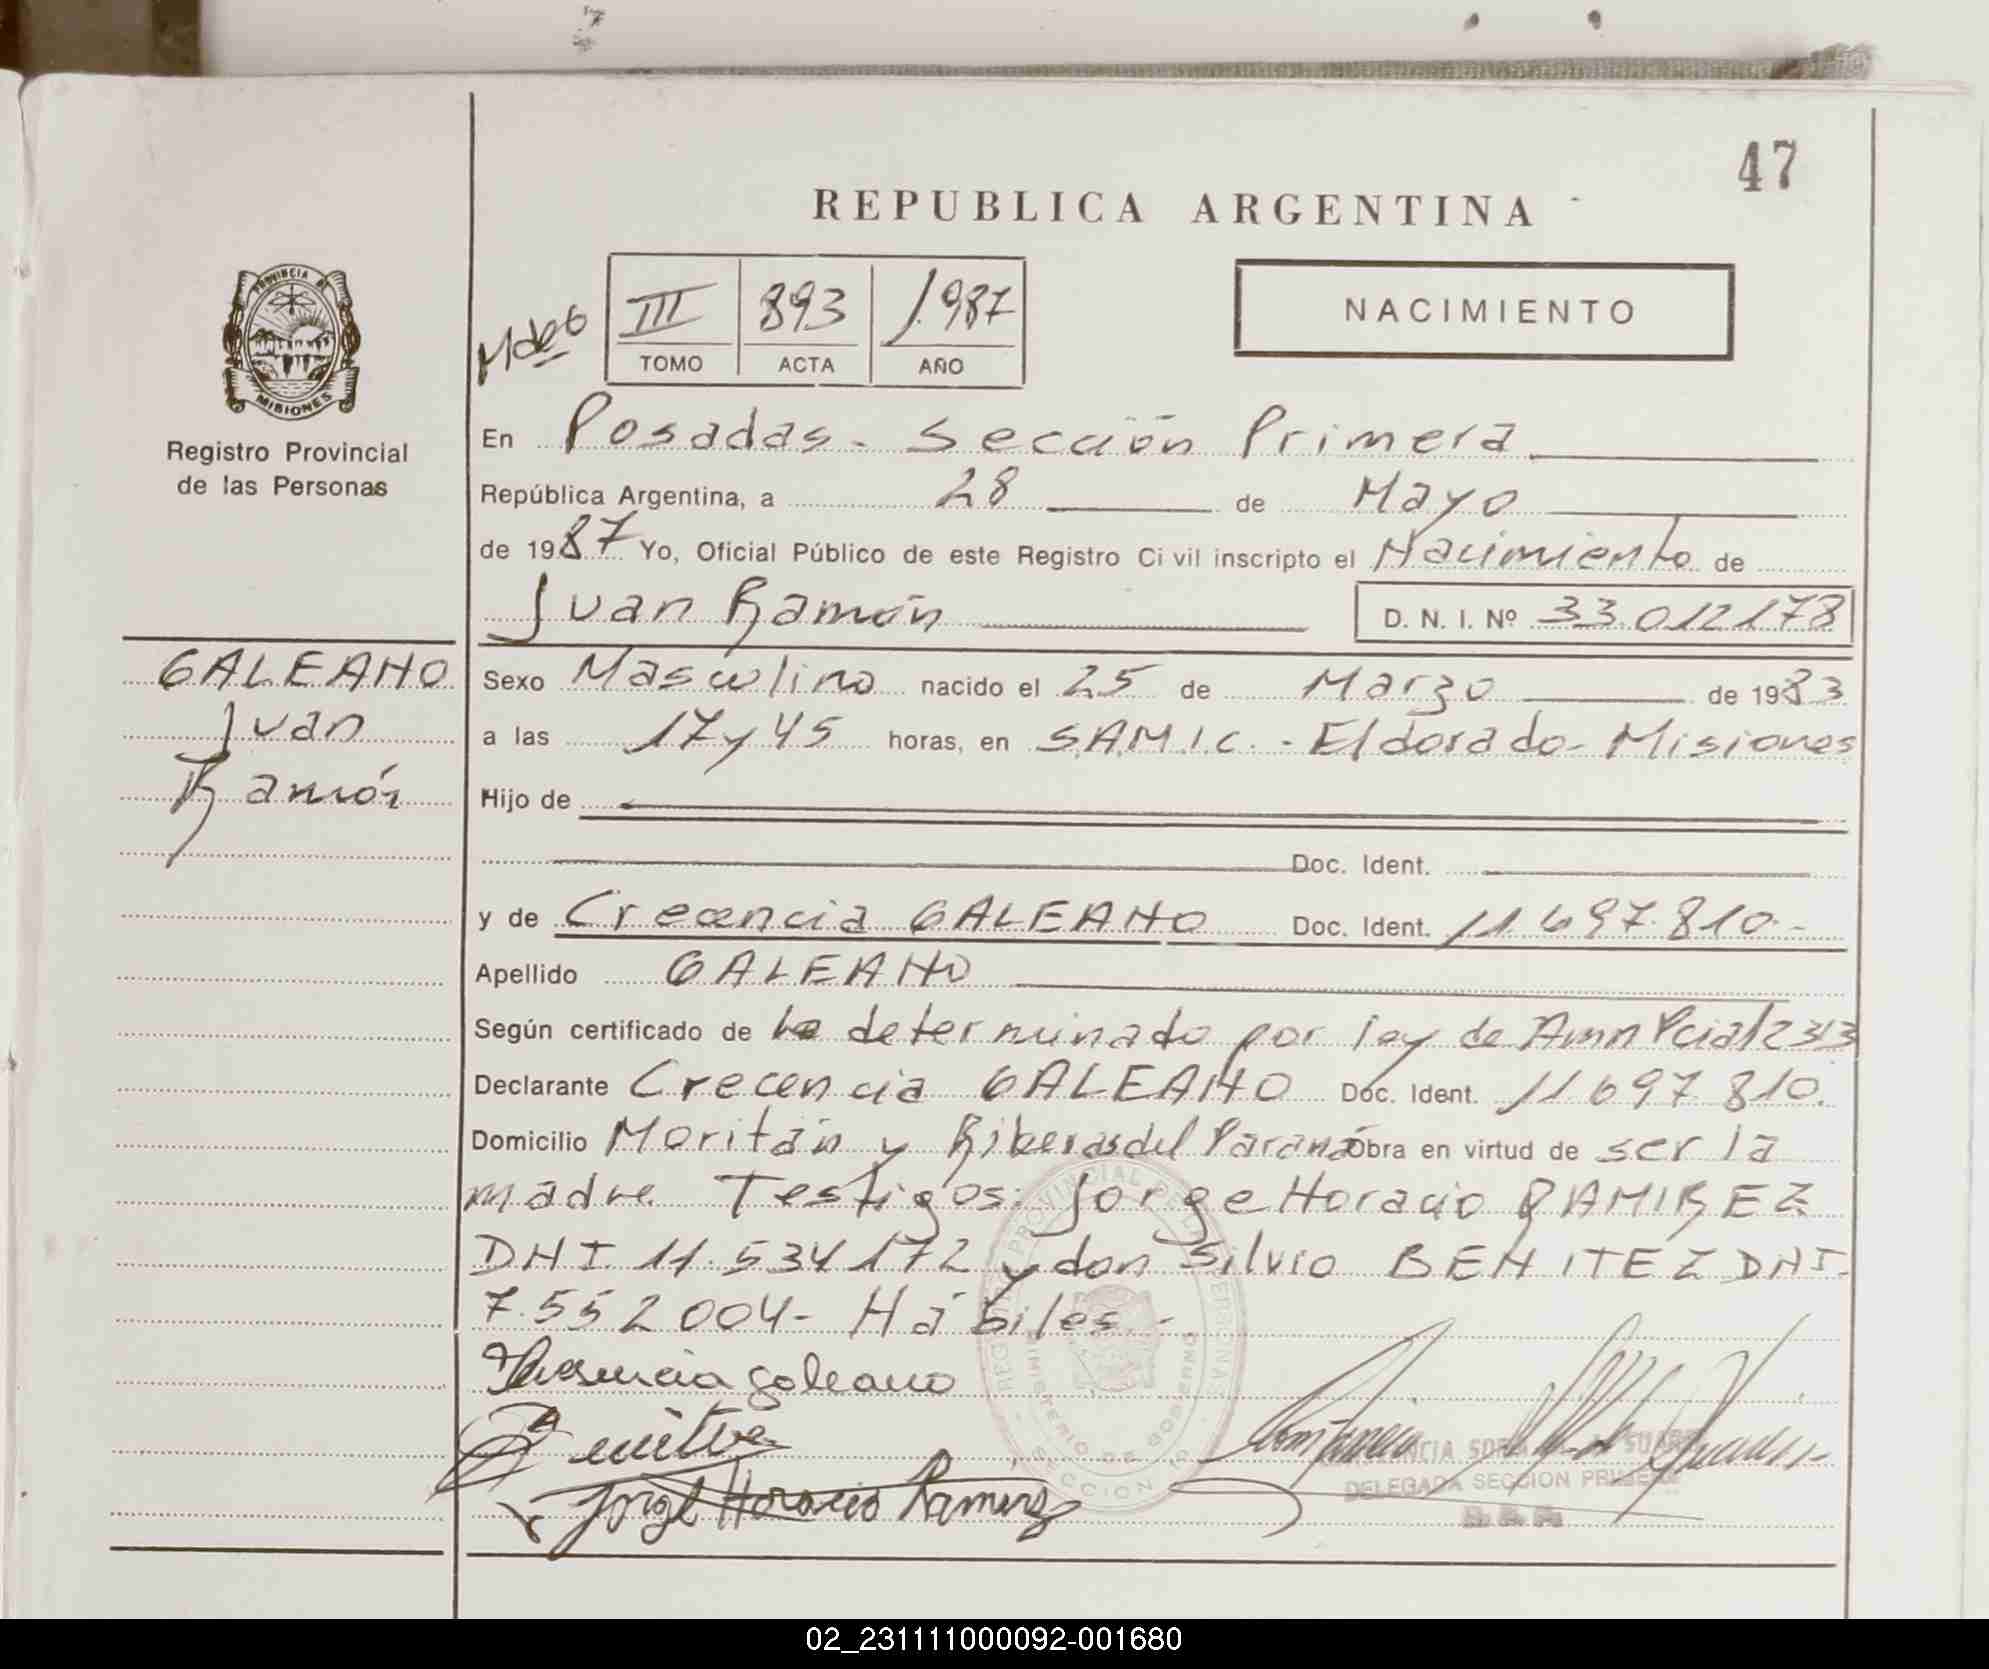 47
REPUBLICA ARGENTINA
PROVINCIA DE
MISIONES
Registro Provincial
de las Personas
III 893 1.987
TOMO ACTA AÑO
NACIMIENTO
En Posadas - Sección Primera
República Argentina, a 28 de Mayo
de 1987 Yo, Oficial Público de este Registro Civil inscripto el Nacimiento de
Juan Ramón D. N. I. Nº 33.012.178
GALEANO
Juan
Ramón
Sexo Masculino nacido el 25 de Marzo de 1983
a las 17 y 45 horas, en S.A.M.I.C. - Eldorado - Misiones
Hijo de
Doc. Ident.
y de Crecencia GALEANO Doc. Ident. 11.697.810.-
Apellido GALEANO
Según certificado de lo determinado por ley de Amn Pcial 2313
Declarante Crecencia GALEANO Doc. Ident. 11.697.810.
Domicilio Moritán y Riberas del Paraná Obra en virtud de ser la
madre. Testigos: Jorge Horacio RAMIREZ
DNI 11.534.172 y don Silvio BENITEZ DNI.
7.552.004- Hábiles.-
galeano
Jorge Horacio Ramirez
REGISTRO PROVINCIAL DE LAS PERSONAS
MINISTERIO DE GOBIERNO
SECCION 1ª
DELEGADA SECCION PRIMERA
02_231111000092-001680